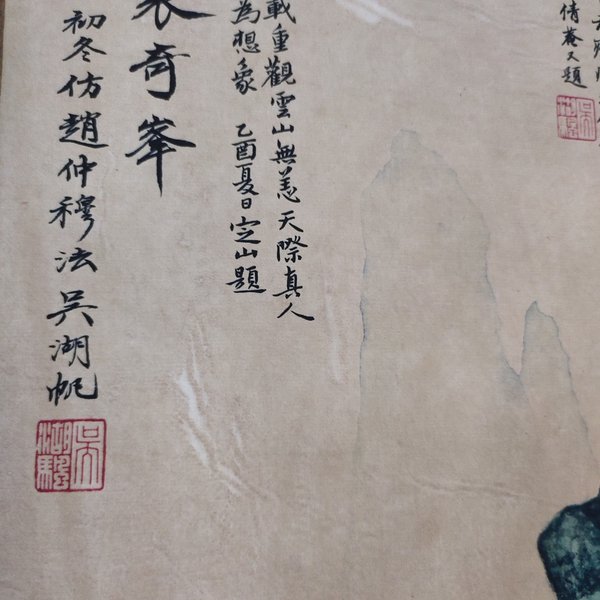 倩菴又題
載重觀雲山無恙天際真人
為想象 乙酉夏日定山題
奇峯
初冬仿趙仲穆法吳湖帆
吳湖颿